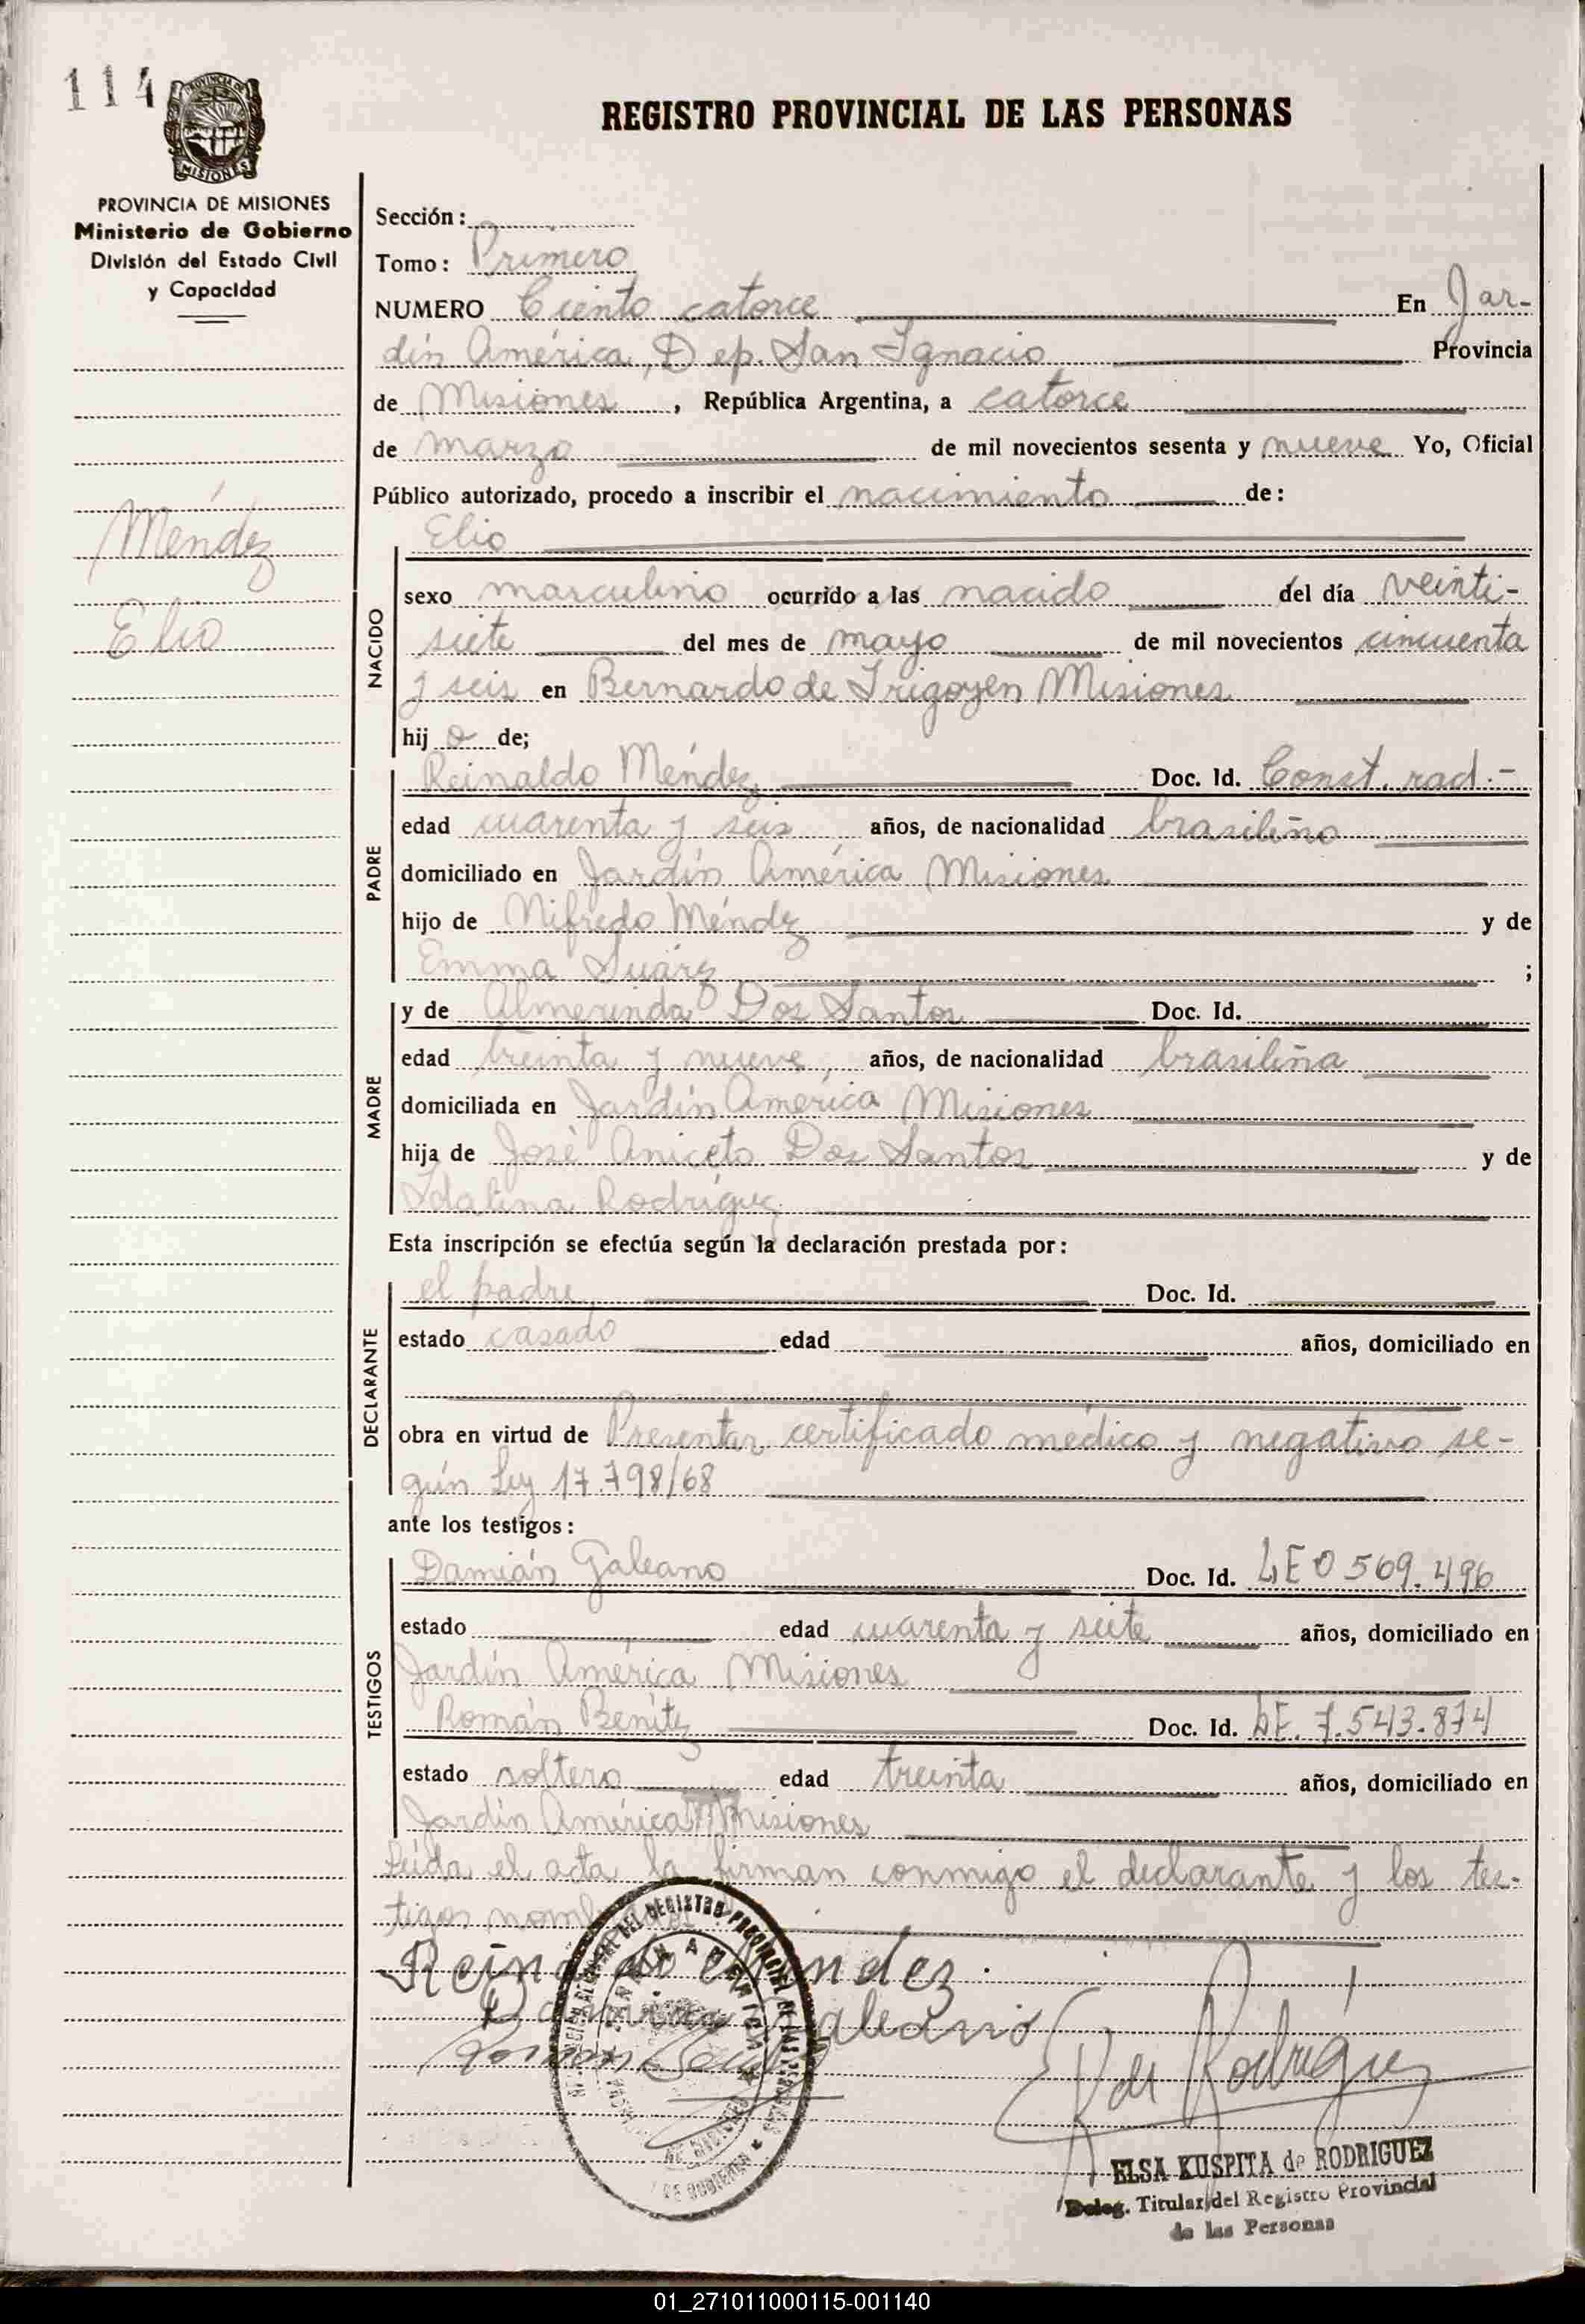 114
REGISTRO PROVINCIAL DE LAS PERSONAS
MISIONES
PROVINCIA DE MISIONES
Ministerio de Gobierno
División del Estado Civil
y Capacidad
Méndez
Elio
Sección:
Tomo: Primero
NUMERO Ciento catorce En Jar-
dín América, Dep. San Ignacio Provincia
de Misiones, República Argentina, a catorce
de marzo de mil novecientos sesenta y nueve Yo, Oficial
Público autorizado, procedo a inscribir el nacimiento de:
Elio
NACIDO
sexo masculino ocurrido a las nacido del día veinti-
siete del mes de mayo de mil novecientos cincuenta
y seis en Bernardo de Irigoyen Misiones
hij o de;
PADRE
Reinaldo Méndez Doc. Id. Const. rad.-
edad cuarenta y seis años, de nacionalidad brasileño
domiciliado en Jardín América Misiones
hijo de Nifredo Méndz y de
Emma Suárz ;
MADRE
y de Almerinda Dos Santos Doc. Id.
edad treinta y nueve, años, de nacionalidad brasileña
domiciliada en Jardín América Misiones
hija de José Aniceto Dos Santos y de
Idalina Rodríguez
Esta inscripción se efectúa según la declaración prestada por:
DECLARANTE
el padre Doc. Id.
estado casado edad años, domiciliado en
obra en virtud de Presentar certificado médico y negativo se-
gún Ley 17.798/68
ante los testigos:
TESTIGOS
Damián Galeano Doc. Id. LE 0 569.496
estado edad cuarenta y siete años, domiciliado en
Jardín América Misiones
Román Benítz Doc. Id. LE. 7.543.874
estado soltero edad treinta años, domiciliado en
Jardín América Misiones
Leída el acta la firman conmigo el declarante y los tes-
tigos
Reinaldo Mendez.
Galeano
Roman
de Rodríguez
ELSA KUSPITA de RODRIGUEZ
Deleg. Titular del Registro Provincial
de las Personas
01_271011000115-001140